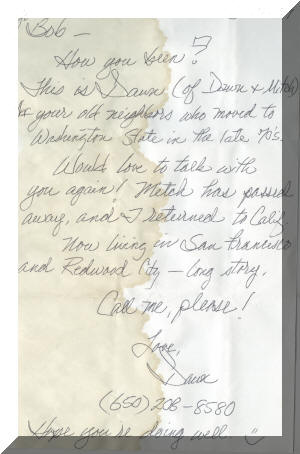 Bob -
How you been?
This is Dawn (of Dawn & Mitch)
& your old neighbors who moved to
Washington State in the late 70's.
Would love to talk with
you again! Mitch has passed
away, and I returned to Calif.
Now living in San Francisco
and Redwood City - long story.
Call me, please!
Love,
Dawn
(650) 208-8580
Hope you're doing well.